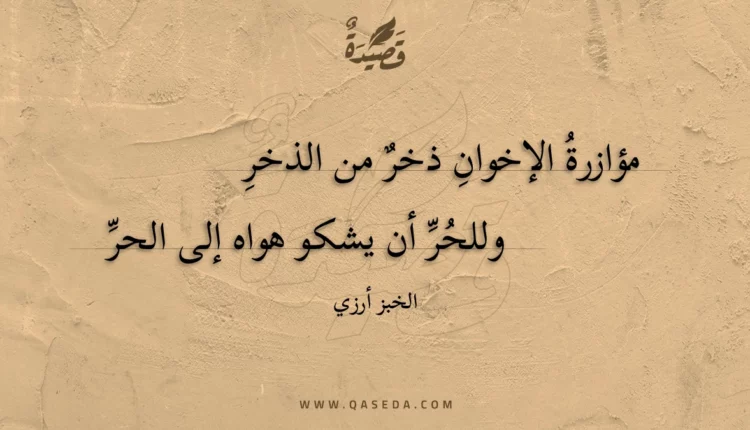 قَصِيْدَةٌ
مؤازرةُ الإخوانِ ذخرٌ من الذخرِ
وللحُرِّ أن يشكو هواه إلى الحرِّ
الخبز أرزي
WWW.QASEDA.COM